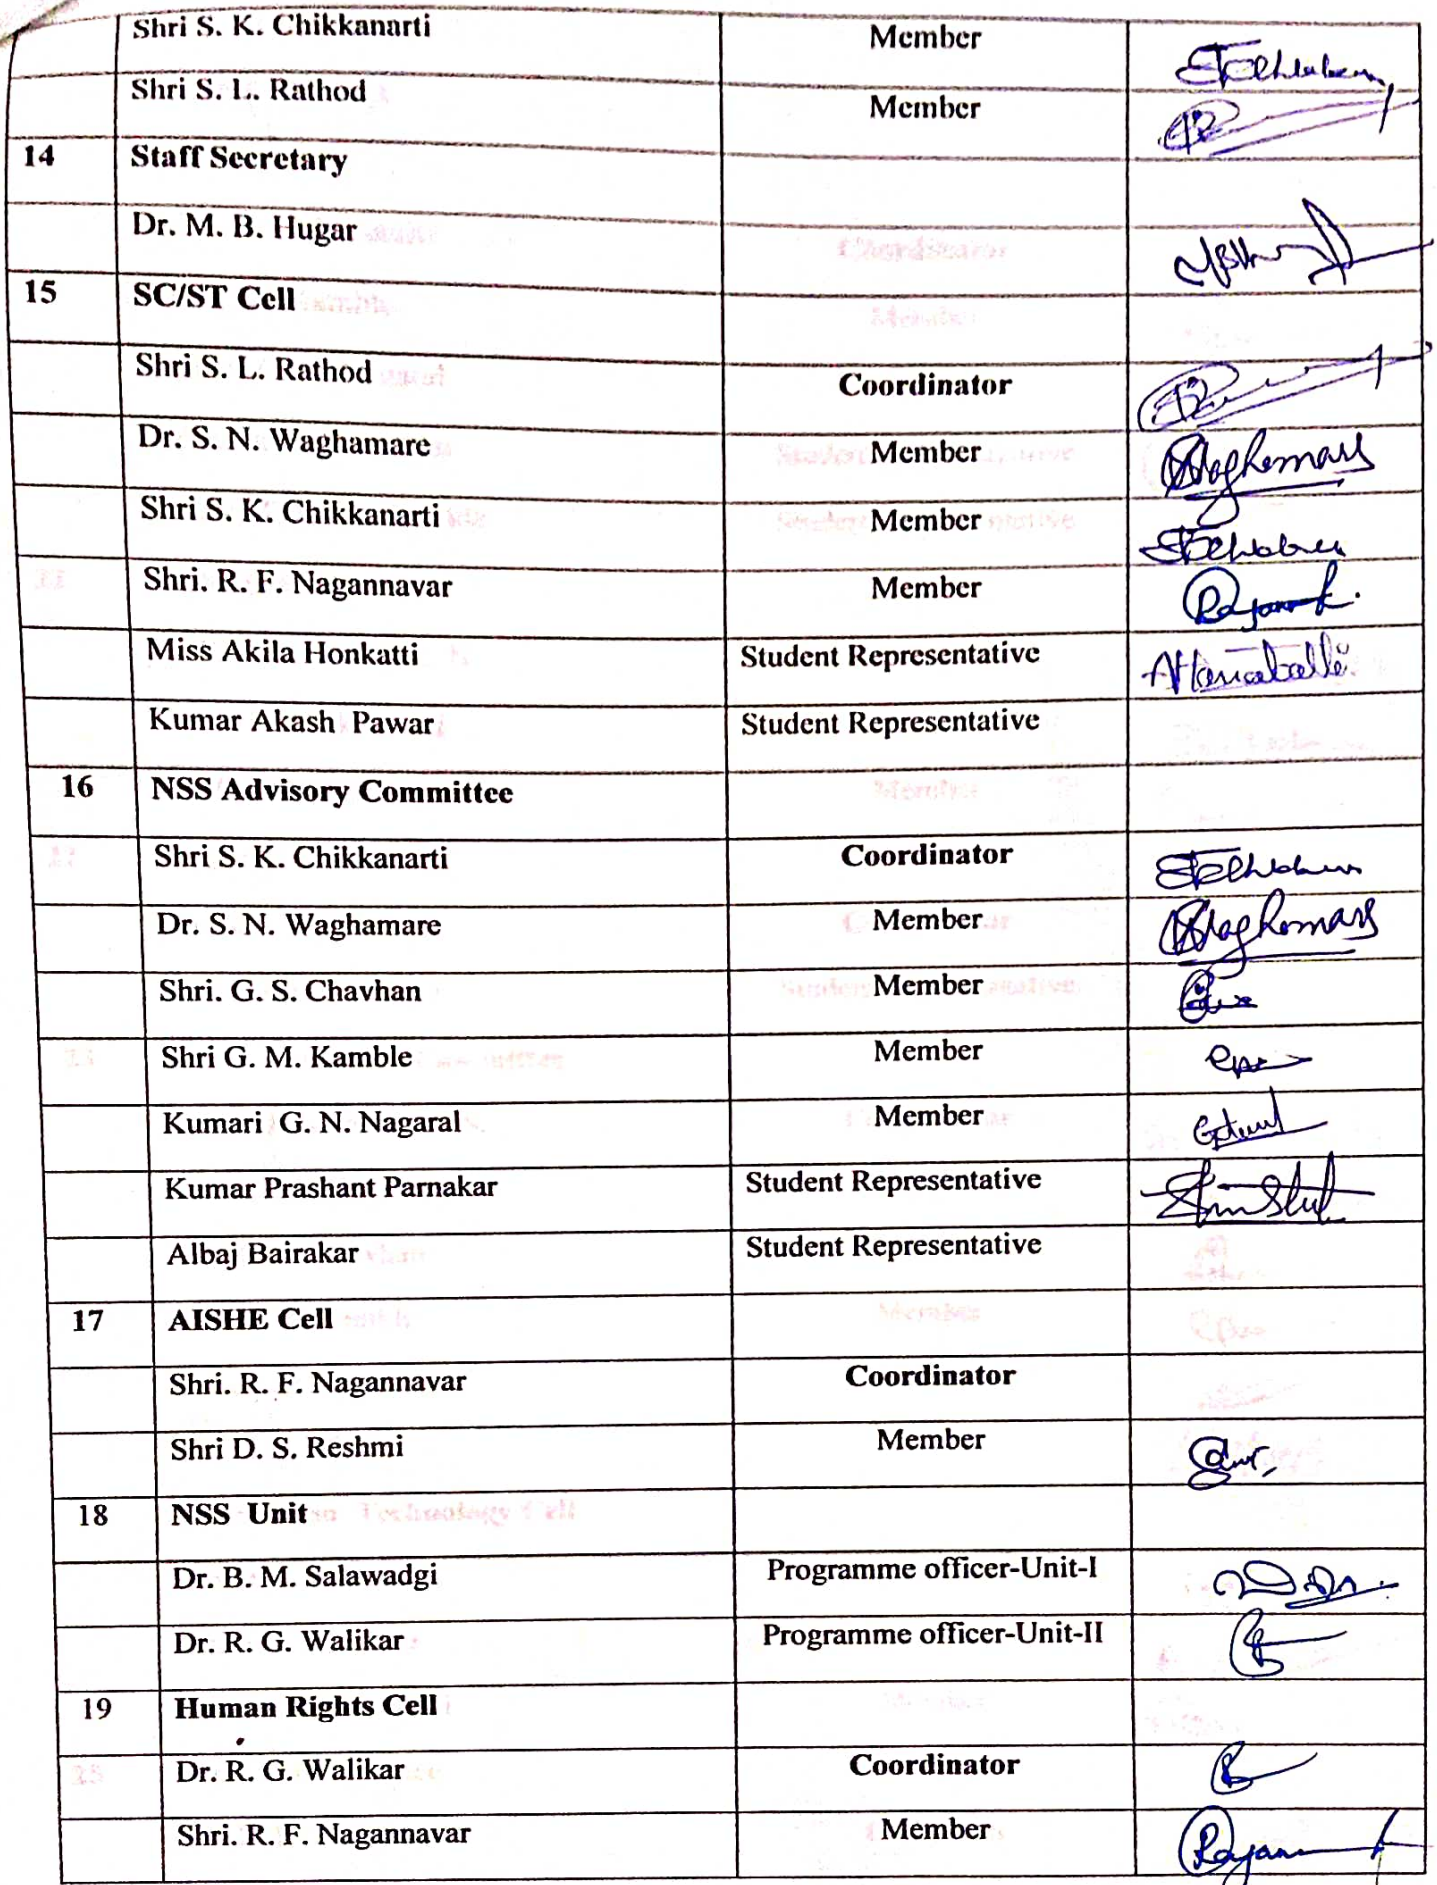 Shri S. K. Chikkanarti Member
Shri S. L. Rathod Member
14 Staff Secretary
Dr. M. B. Hugar
15 SC/ST Cell
Shri S. L. Rathod Coordinator
Dr. S. N. Waghamare Member
Shri S. K. Chikkanarti Member
Shri. R. F. Nagannavar Member
Miss Akila Honkatti Student Representative
Kumar Akash Pawar Student Representative
16 NSS Advisory Committee
Shri S. K. Chikkanarti Coordinator
Dr. S. N. Waghamare Member
Shri. G. S. Chavhan Member
Shri G. M. Kamble Member
Kumari G. N. Nagaral Member
Kumar Prashant Parnakar Student Representative
Albaj Bairakar Student Representative
17 AISHE Cell
Shri. R. F. Nagannavar Coordinator
Shri D. S. Reshmi Member
18 NSS Unit
Dr. B. M. Salawadgi Programme officer-Unit-I
Dr. R. G. Walikar Programme officer-Unit-II
19 Human Rights Cell
Dr. R. G. Walikar Coordinator
Shri. R. F. Nagannavar Member